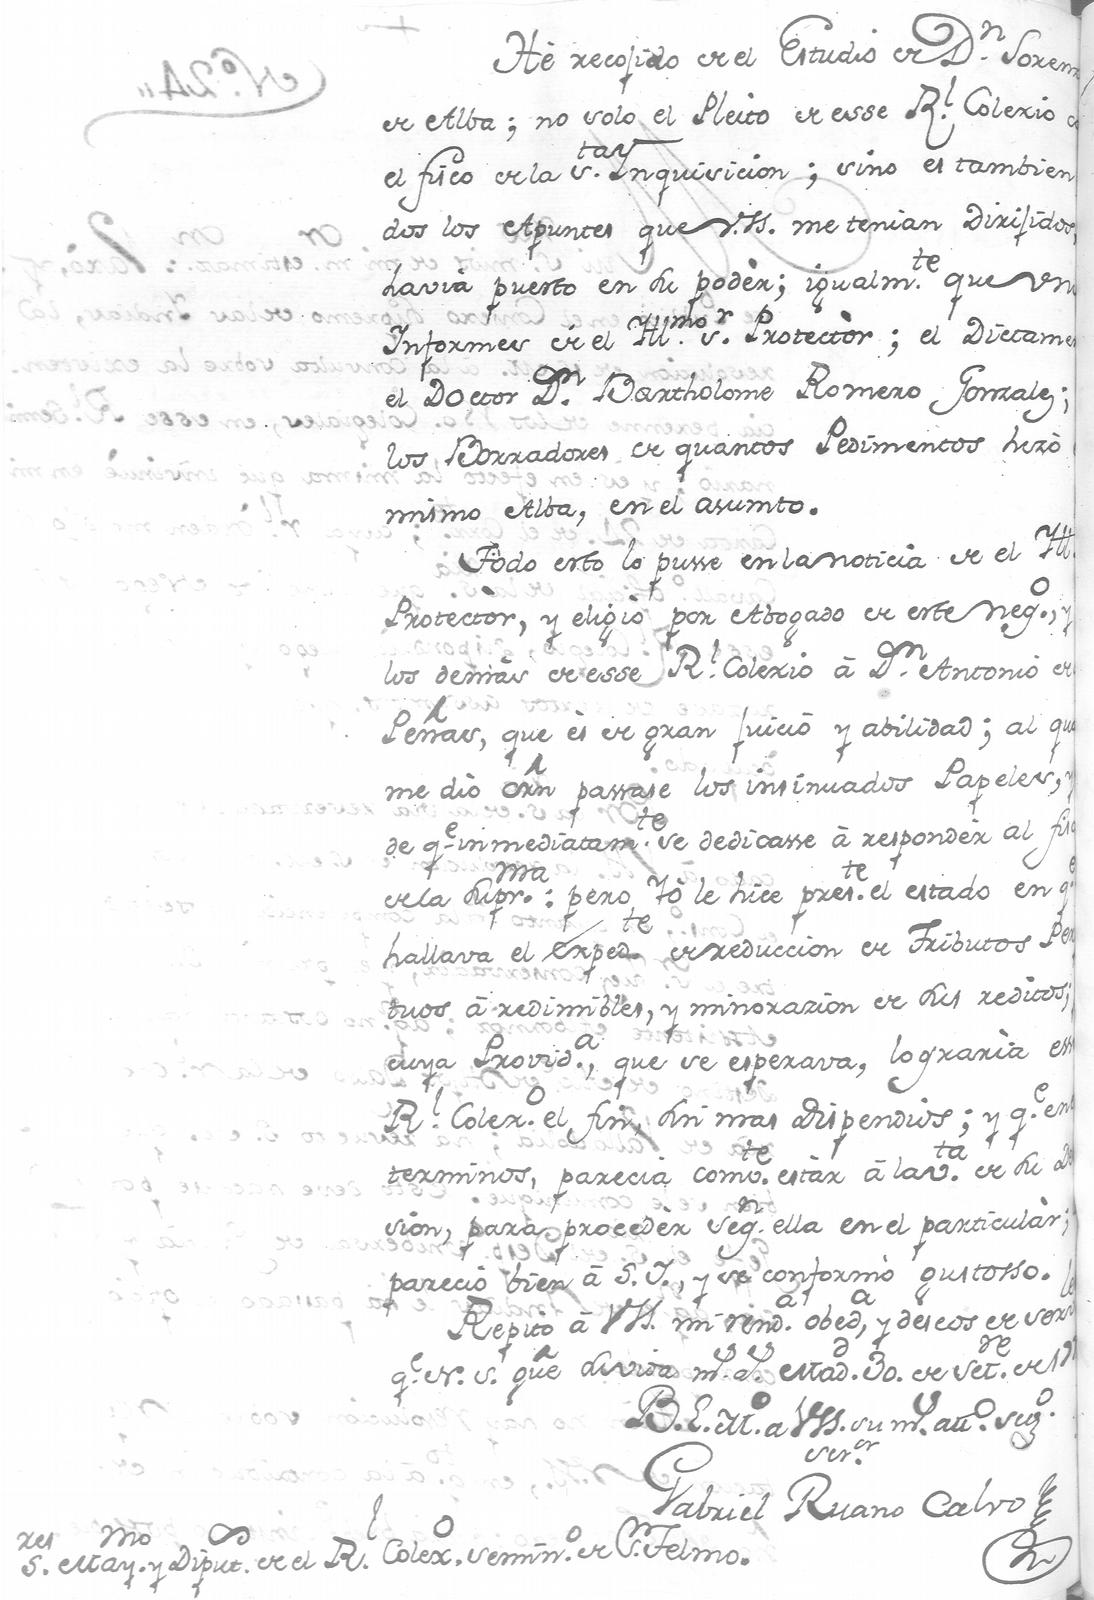 Hè recogido de el Estudio de Dn. Loren
de Alba; no solo el Pleito de esse Rl. Colexio
el fisco de la s.ta Ynquisicion; sino es tambien
dos los Apuntes que V.SS. me tenian dirigidos,
havia puesto en su podèr; igualm.te que
Informes de el Ill.mo s.r Protectòr; el Dictame
el Doctor Dn. Bartholome Romero Gonzalez;
los Borradores de quantos Pedimentos hizò
mismo Alba, en el asumto.
Todo esto lo pusse en la noticia de el Ill.
Protector, y eligiò por Abogado de este neg.o, y
los demàs de esse Rl. Colexio à Dn. Antonio de
Peñas, que ès de gran juiciò y abilidad; al qu
me diò orn passase los insinuados Papeles, y
de q.e inmediatam.te se dedicasse à respondèr al fis
de la supr.ma: pero Yò le hice pres.te el estado en q.e
hallava el exped.te de reduccion de Tributos Per
tuos à redimibles, y minorazion de sus reditos;
cuya Provid.a, que se esperava, lograrìa es
Rl. Colex.o el fin, sin mas dispendios; y q.e en
terminos, parecia como.te estàr à la v.ta de su De
sion, para procedèr seg.n ella en el particulàr;
pareciò bien à S. I., y se conformò gustosso.
Repito à VSS. mi rend.a obed.a, y deseos de ser
q.e N. s. gûe su vida m.s a.s Mad.d 30. de set.re de
B. L. M. a VSS. su m.s aff.o seg.o
ser.or
Gabriel Ruano Calvo
S.res May.mo y Diput.os de el R.l Colex.o semin.o de Sn. Telmo.